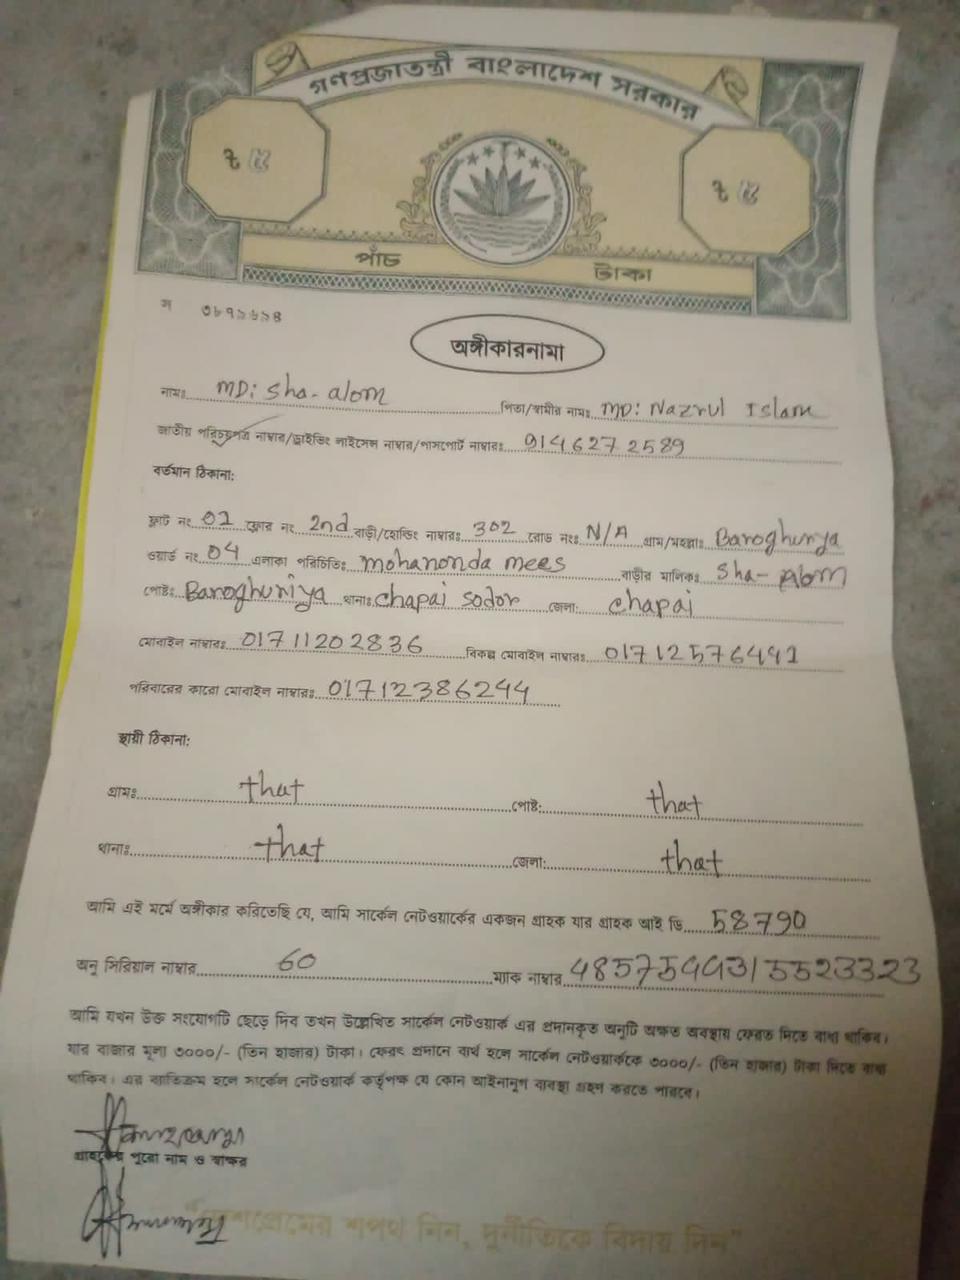 গণপ্রজাতন্ত্রী বাংলাদেশ সরকার
৳ ৫ ৳ ৫
পাঁচ টাকা
৩৮৭১৬১৪
অঙ্গীকারনামা
নামঃ MD: Sha-alom পিতা/স্বামীর নামঃ MD: Nazrul Islam
জাতীয় পরিচয়পত্র নাম্বার/ড্রাইভিং লাইসেন্স নাম্বার/পাসপোর্ট নাম্বারঃ 9146272589
বর্তমান ঠিকানা:
ফ্লাট নং 01 ফ্লোর নং 2nd বাড়ী/হোল্ডিং নাম্বারঃ 302 রোড নংঃ N/A গ্রাম/মহল্লাঃ Baroghurya
ওয়ার্ড নং 04 এলাকা পরিচিতিঃ mohanonda mees বাড়ীর মালিকঃ Sha-Alom
পোষ্টঃ Baroghuriya থানাঃ chapai sodor জেলা: chapai
মোবাইল নাম্বারঃ 01711202836 বিকল্প মোবাইল নাম্বারঃ 01712576441
পরিবারের কারো মোবাইল নাম্বারঃ 01712386244
স্থায়ী ঠিকানা:
গ্রামঃ that পোষ্ট: that
থানাঃ that জেলা: that
আমি এই মর্মে অঙ্গীকার করিতেছি যে, আমি সার্কেল নেটওয়ার্কের একজন গ্রাহক যার গ্রাহক আই ডি 58790
অনু সিরিয়াল নাম্বার 60 ম্যাক নাম্বার
আমি যখন উক্ত সংযোগটি ছেড়ে দিব তখন উল্লেখিত সার্কেল নেটওয়ার্ক এর প্রদানকৃত অনুটি অক্ষত অবস্থায় ফেরত দিতে বাধ্য থাকিব।
যার বাজার মূল্য ৩০০০/- (তিন হাজার) টাকা। ফেরৎ প্রদানে ব্যর্থ হলে সার্কেল নেটওয়ার্ককে ৩০০০/- (তিন হাজার) টাকা দিতে বাধ্য
থাকিব। এর ব্যতিক্রম হলে সার্কেল নেটওয়ার্ক কর্তৃপক্ষ যে কোন আইনানুগ ব্যবস্থা গ্রহণ করতে পারবে।
গ্রাহকের পুরো নাম ও স্বাক্ষর
"দেশপ্রেমের শপথ নিন, দুর্নীতিকে বিদায় দিন"